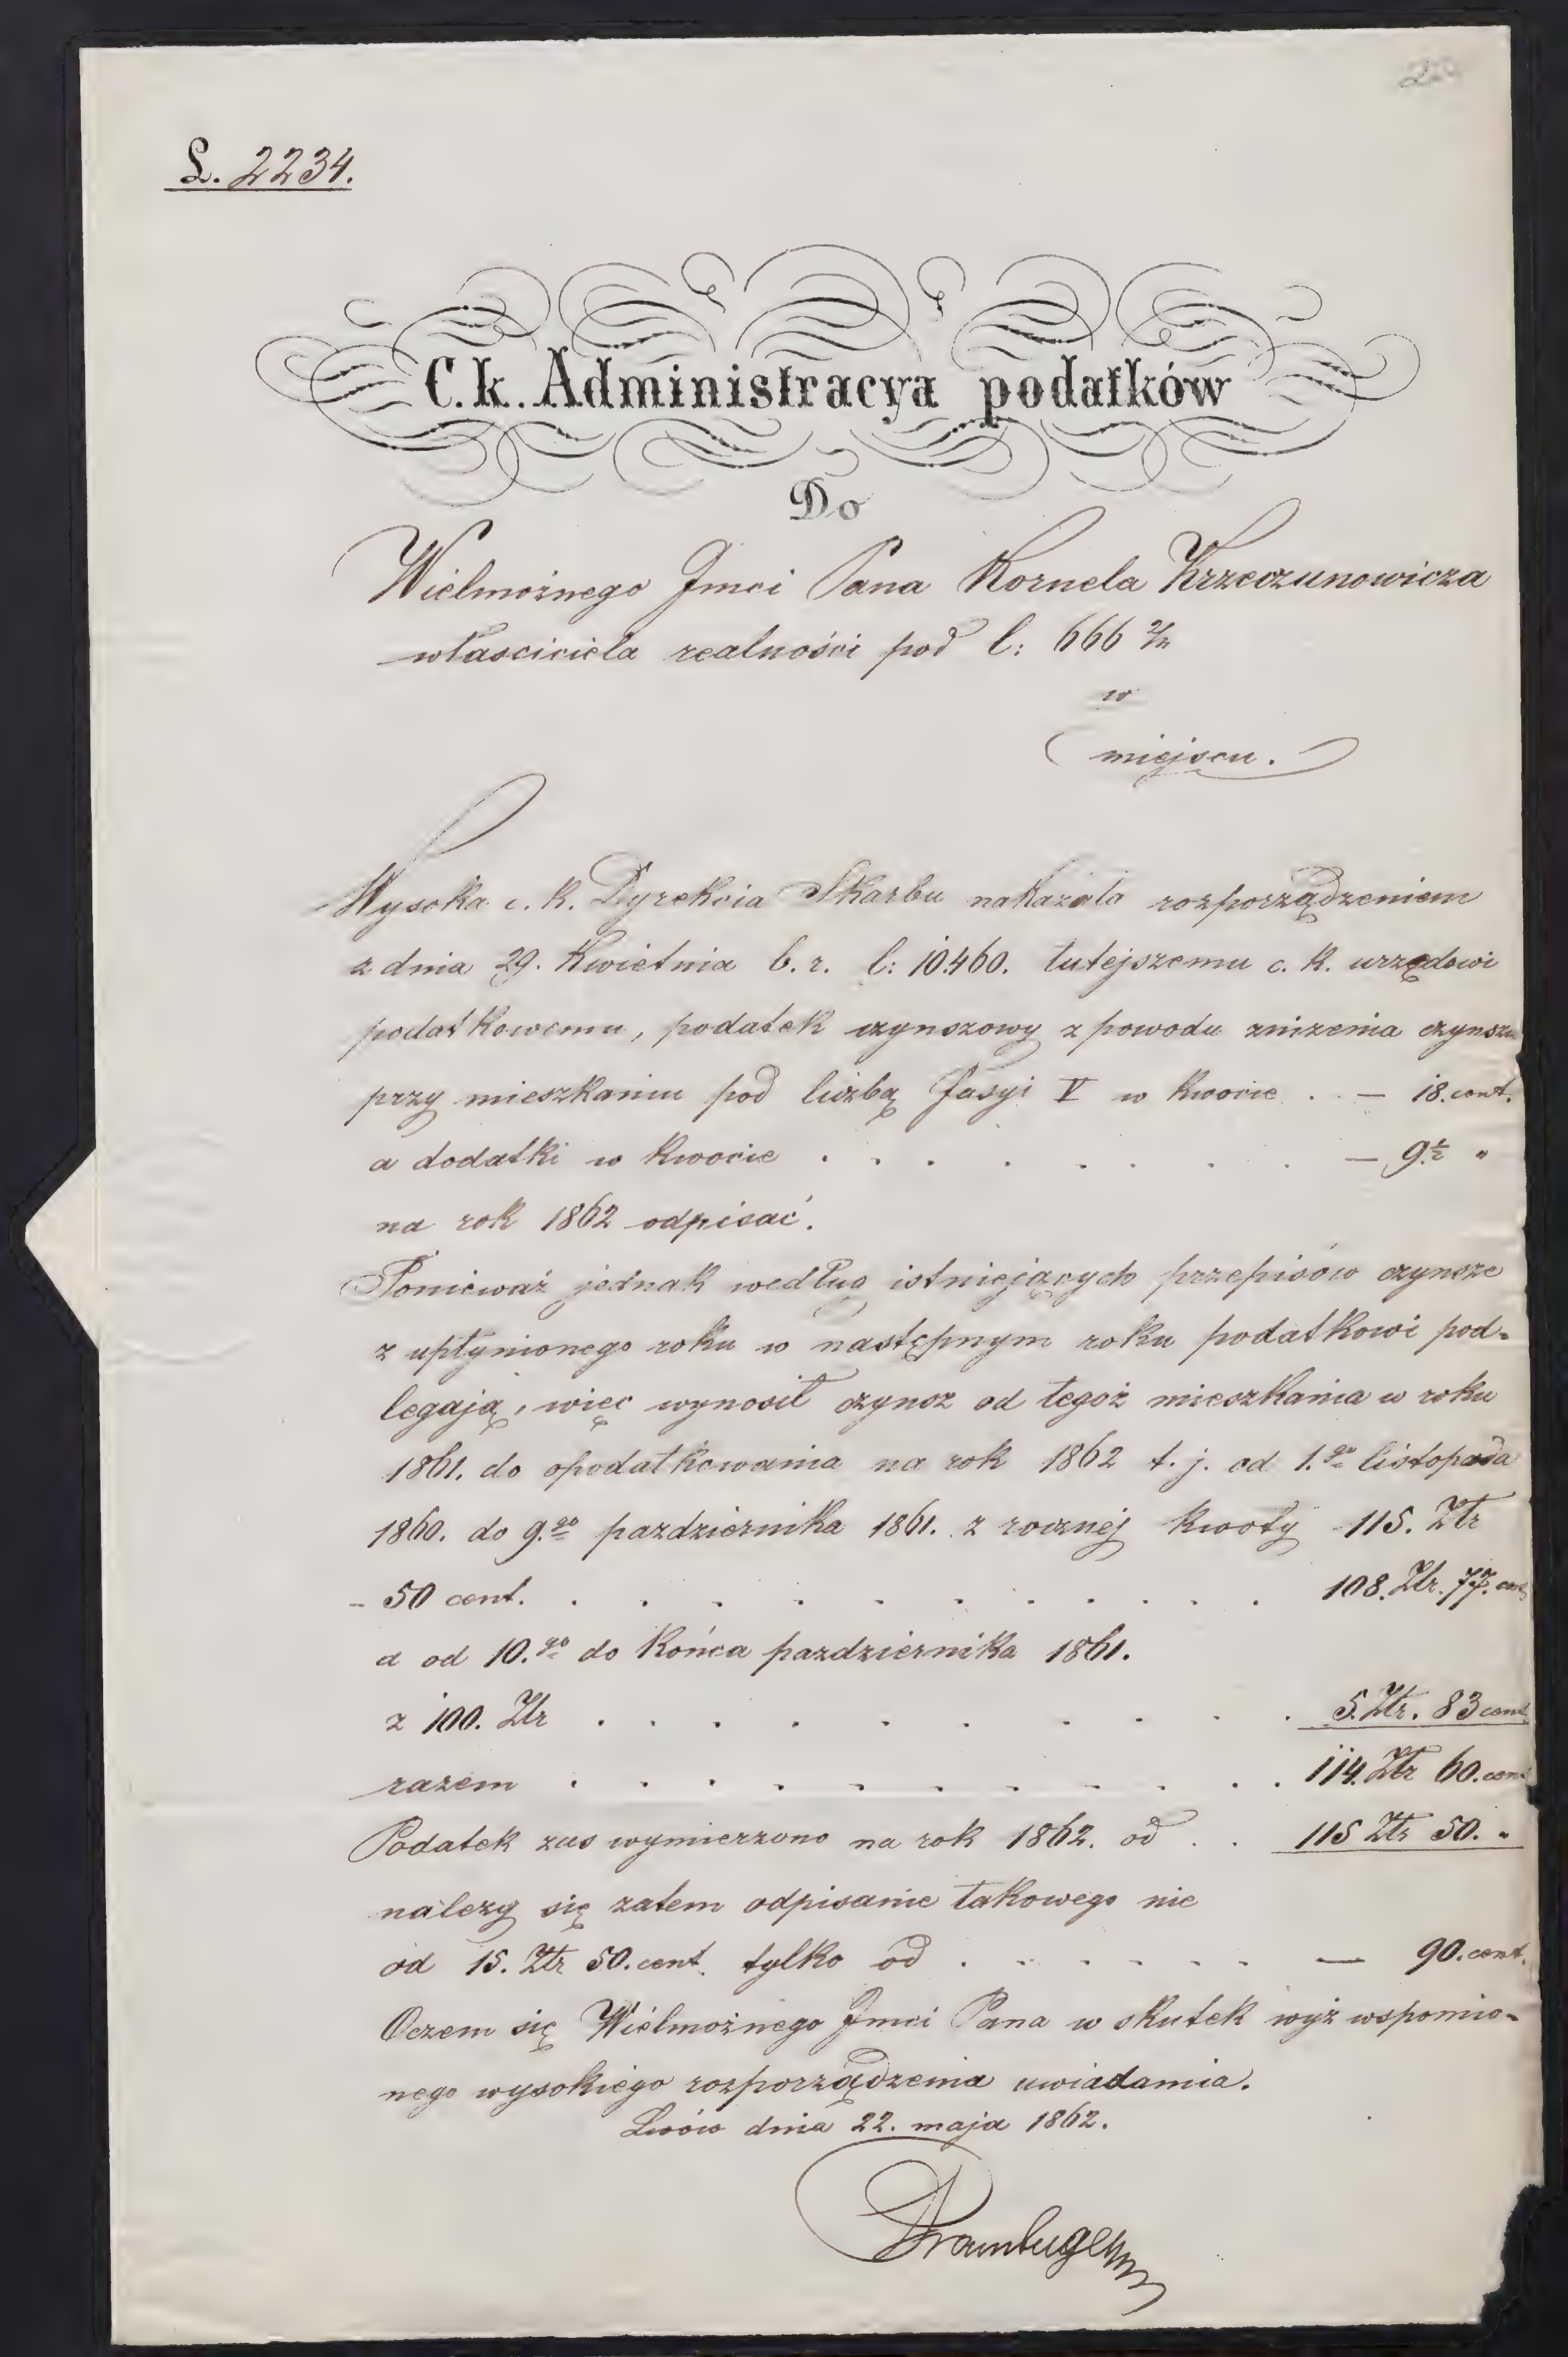 L. 2234.
C. k. Administracya podatków
Do
Wielmożnego Jmci Pana Kornela Krzeczunowicza
własciciela realności pod l: 666 2/4
w
miejscu.
Wysoka c. k. Dyrekcia Skarbu nakazała rozporządzeniem
z dnia 29. Kwietnia b. r. l: 10460. tutejszemu c. k. urzędowi
podatkowemu, podatek czynszowy z powodu zniżenia czynszu
przy mieszkaniu pod liczbą fasyi V w kwocie . . — 18. cent.
a dodatki w kwocie . . . . . . . . — 9 1/2 "
na rok 1862 odpisać.
Ponieważ jednak według istniejących przepisów czynsze
z upłynionego roku w następnym roku podatkowi pod-
legają, więc wynosił czynsz od tegoż mieszkania w roku
1861. do opodatkowania na rok 1862 t. j. od 1.go listopada
1860. do 9.go pazdziernika 1861. z rocznej kwoty 115. Złr
- 50 cent. . . . . . . . . . . 108. Złr. 77. cent
a od 10.go do końca pazdziernika 1861.
z 100. Złr . . . . . . . . . . 5. Złr. 83 cent.
razem . . . . . . . . . . 114. Złr 60. cent
Podatek zas wymierzono na rok 1862. od . . 115 Złr 50. "
należy się zatem odpisanie takowego nie
od 15. Złr 50. cent. tylko od . . . . . . — 90. cent.
Oczem się Wielmożnego Jmci Pana w skutek wyż wspomio-
nego wysokiego rozporządzenia uwiadamia.
Lwów dnia 22. maja 1862.